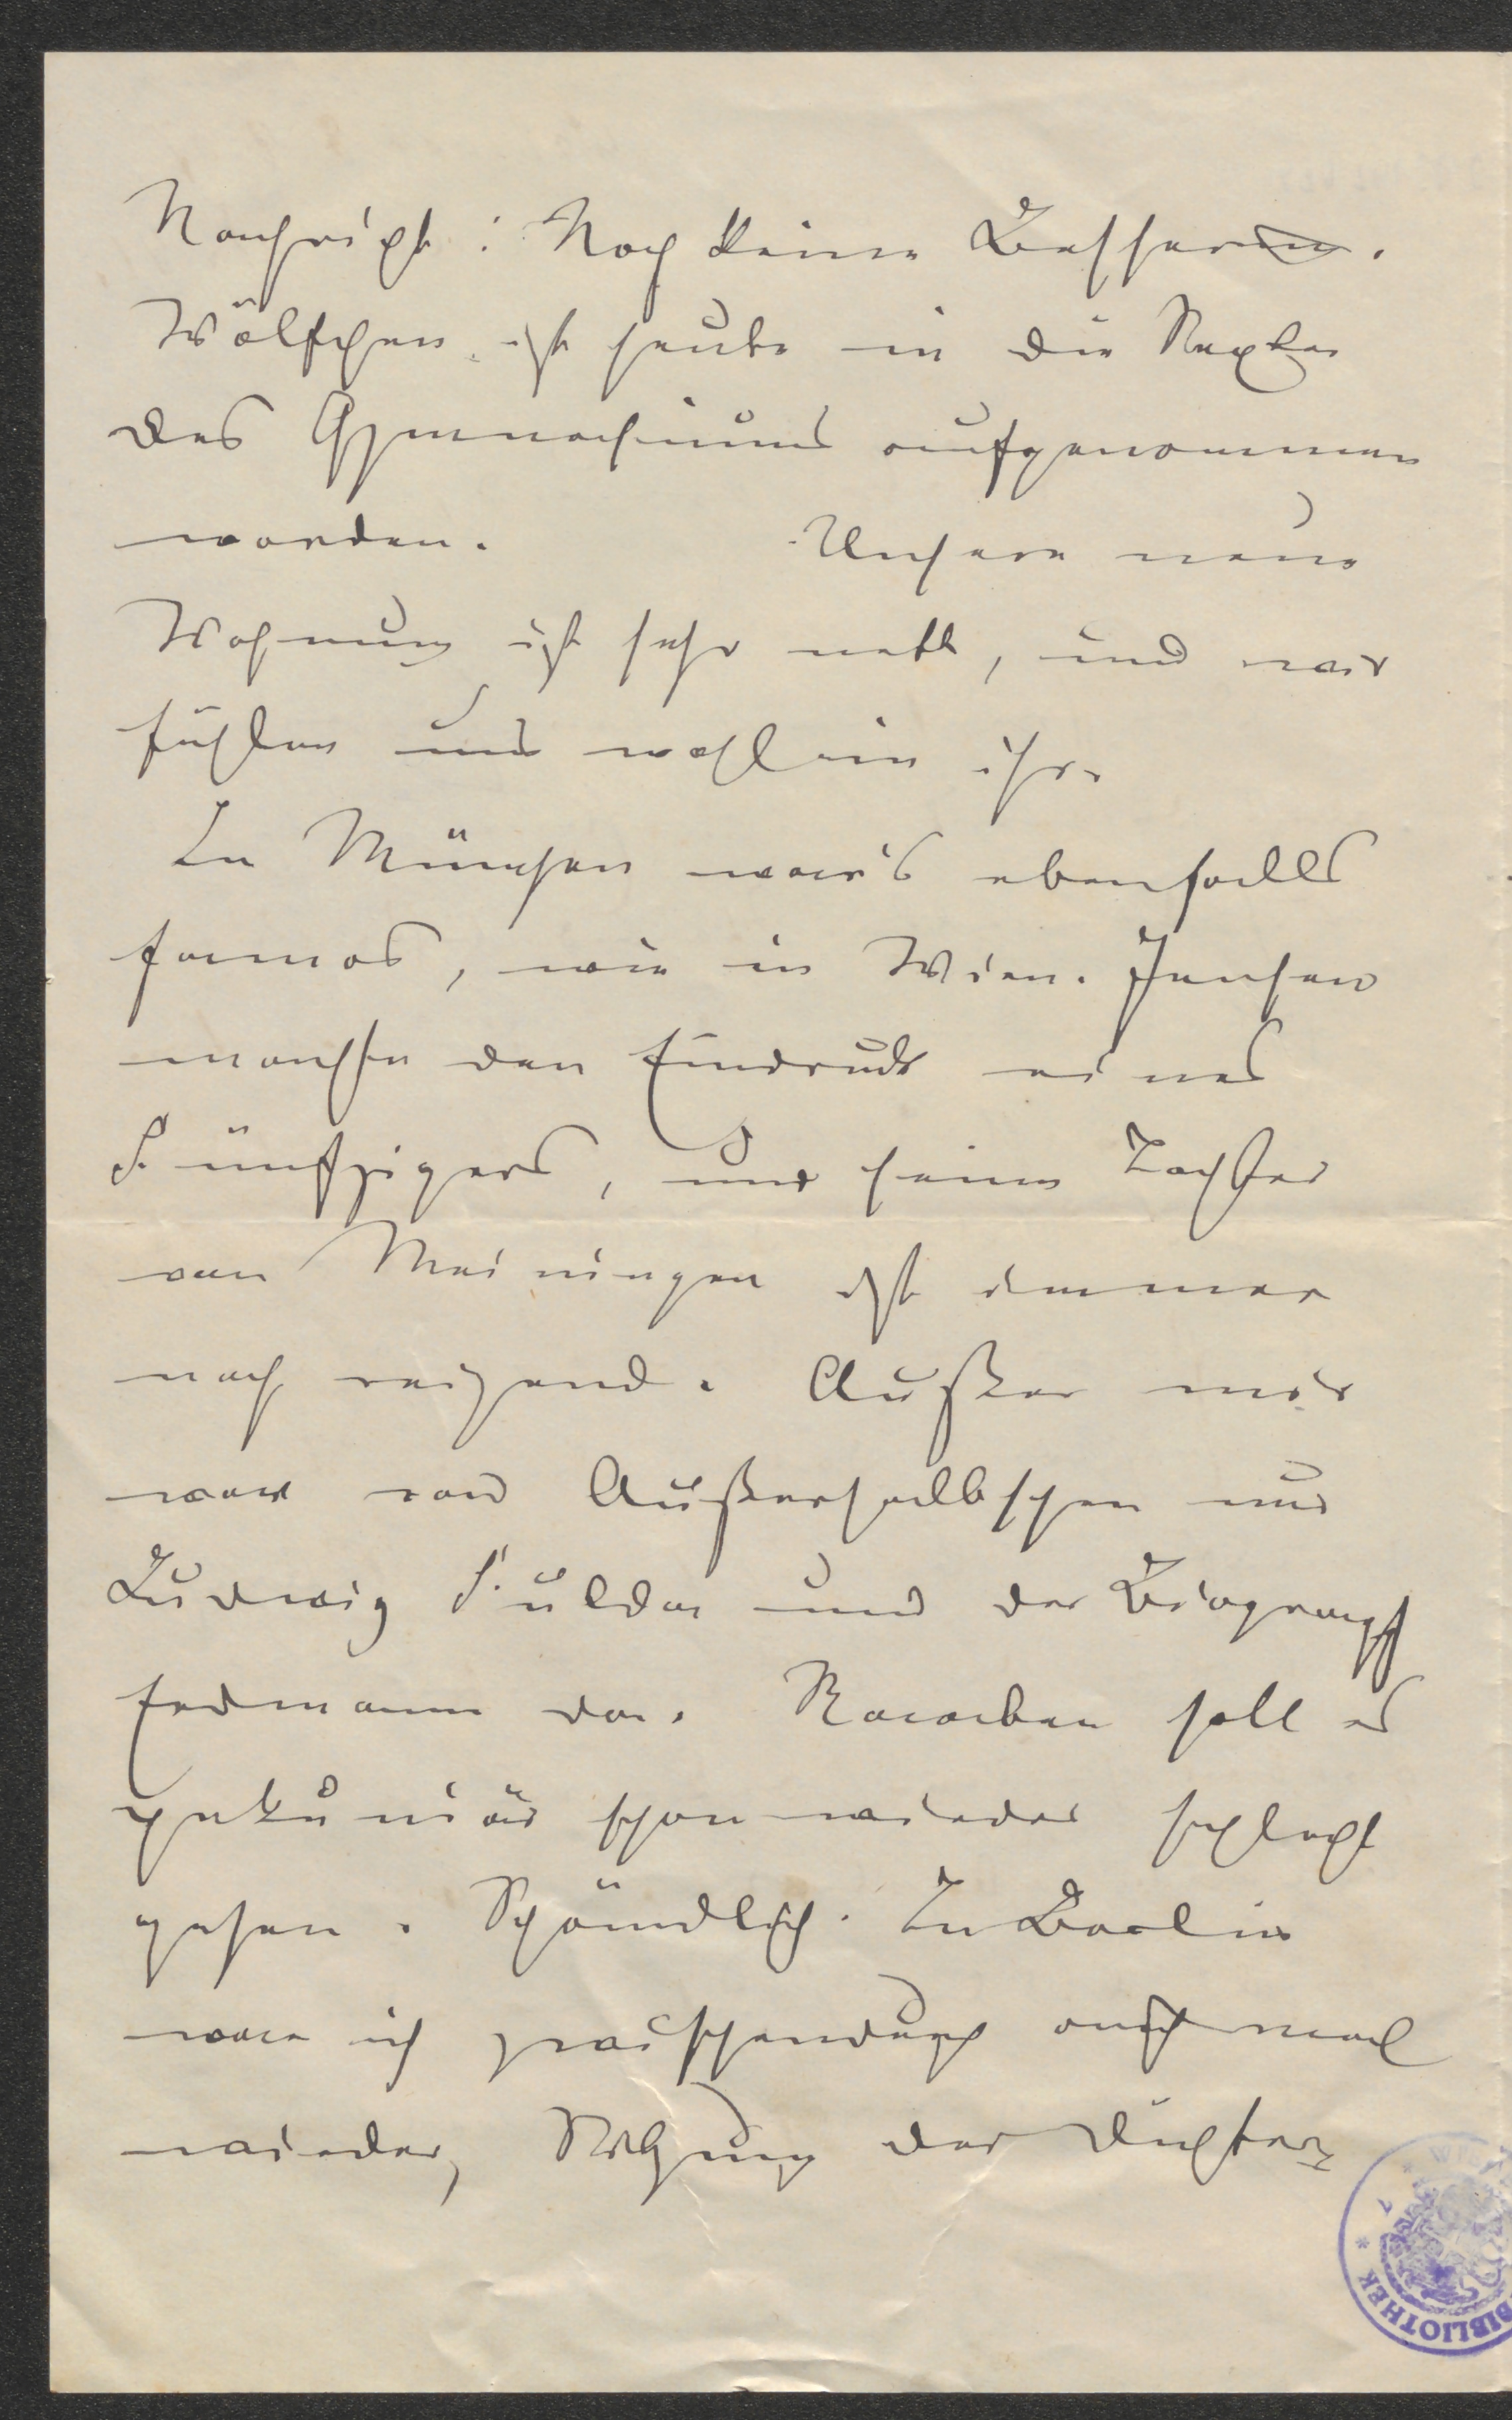 Nachricht: Noch keine Besserun.
Wölfchen ist heute in die Sexta
des Gymnasiums aufgenommen
worden. Unsere neue
Wohnung ist sehr nett, und wir
fühlen uns wohl in ihr.
In München war's ebenfalls
famos, wie in Wien. Jensen
machte den Eindruck eines
Fünfzigers, und seine Tochter
von Meiningen ist immer
noch reizend. Außer mir
war von Außerhalbschen nur
Ludwig Fulda und der Biograph
Erdmann da. Raraben soll es
pekuniär schon wieder schlecht
gehen. Schändlich. In Berlin
war ich zwischendurch auch mal
wieder, Sitzung der Dichter
BIBLIOTHEK